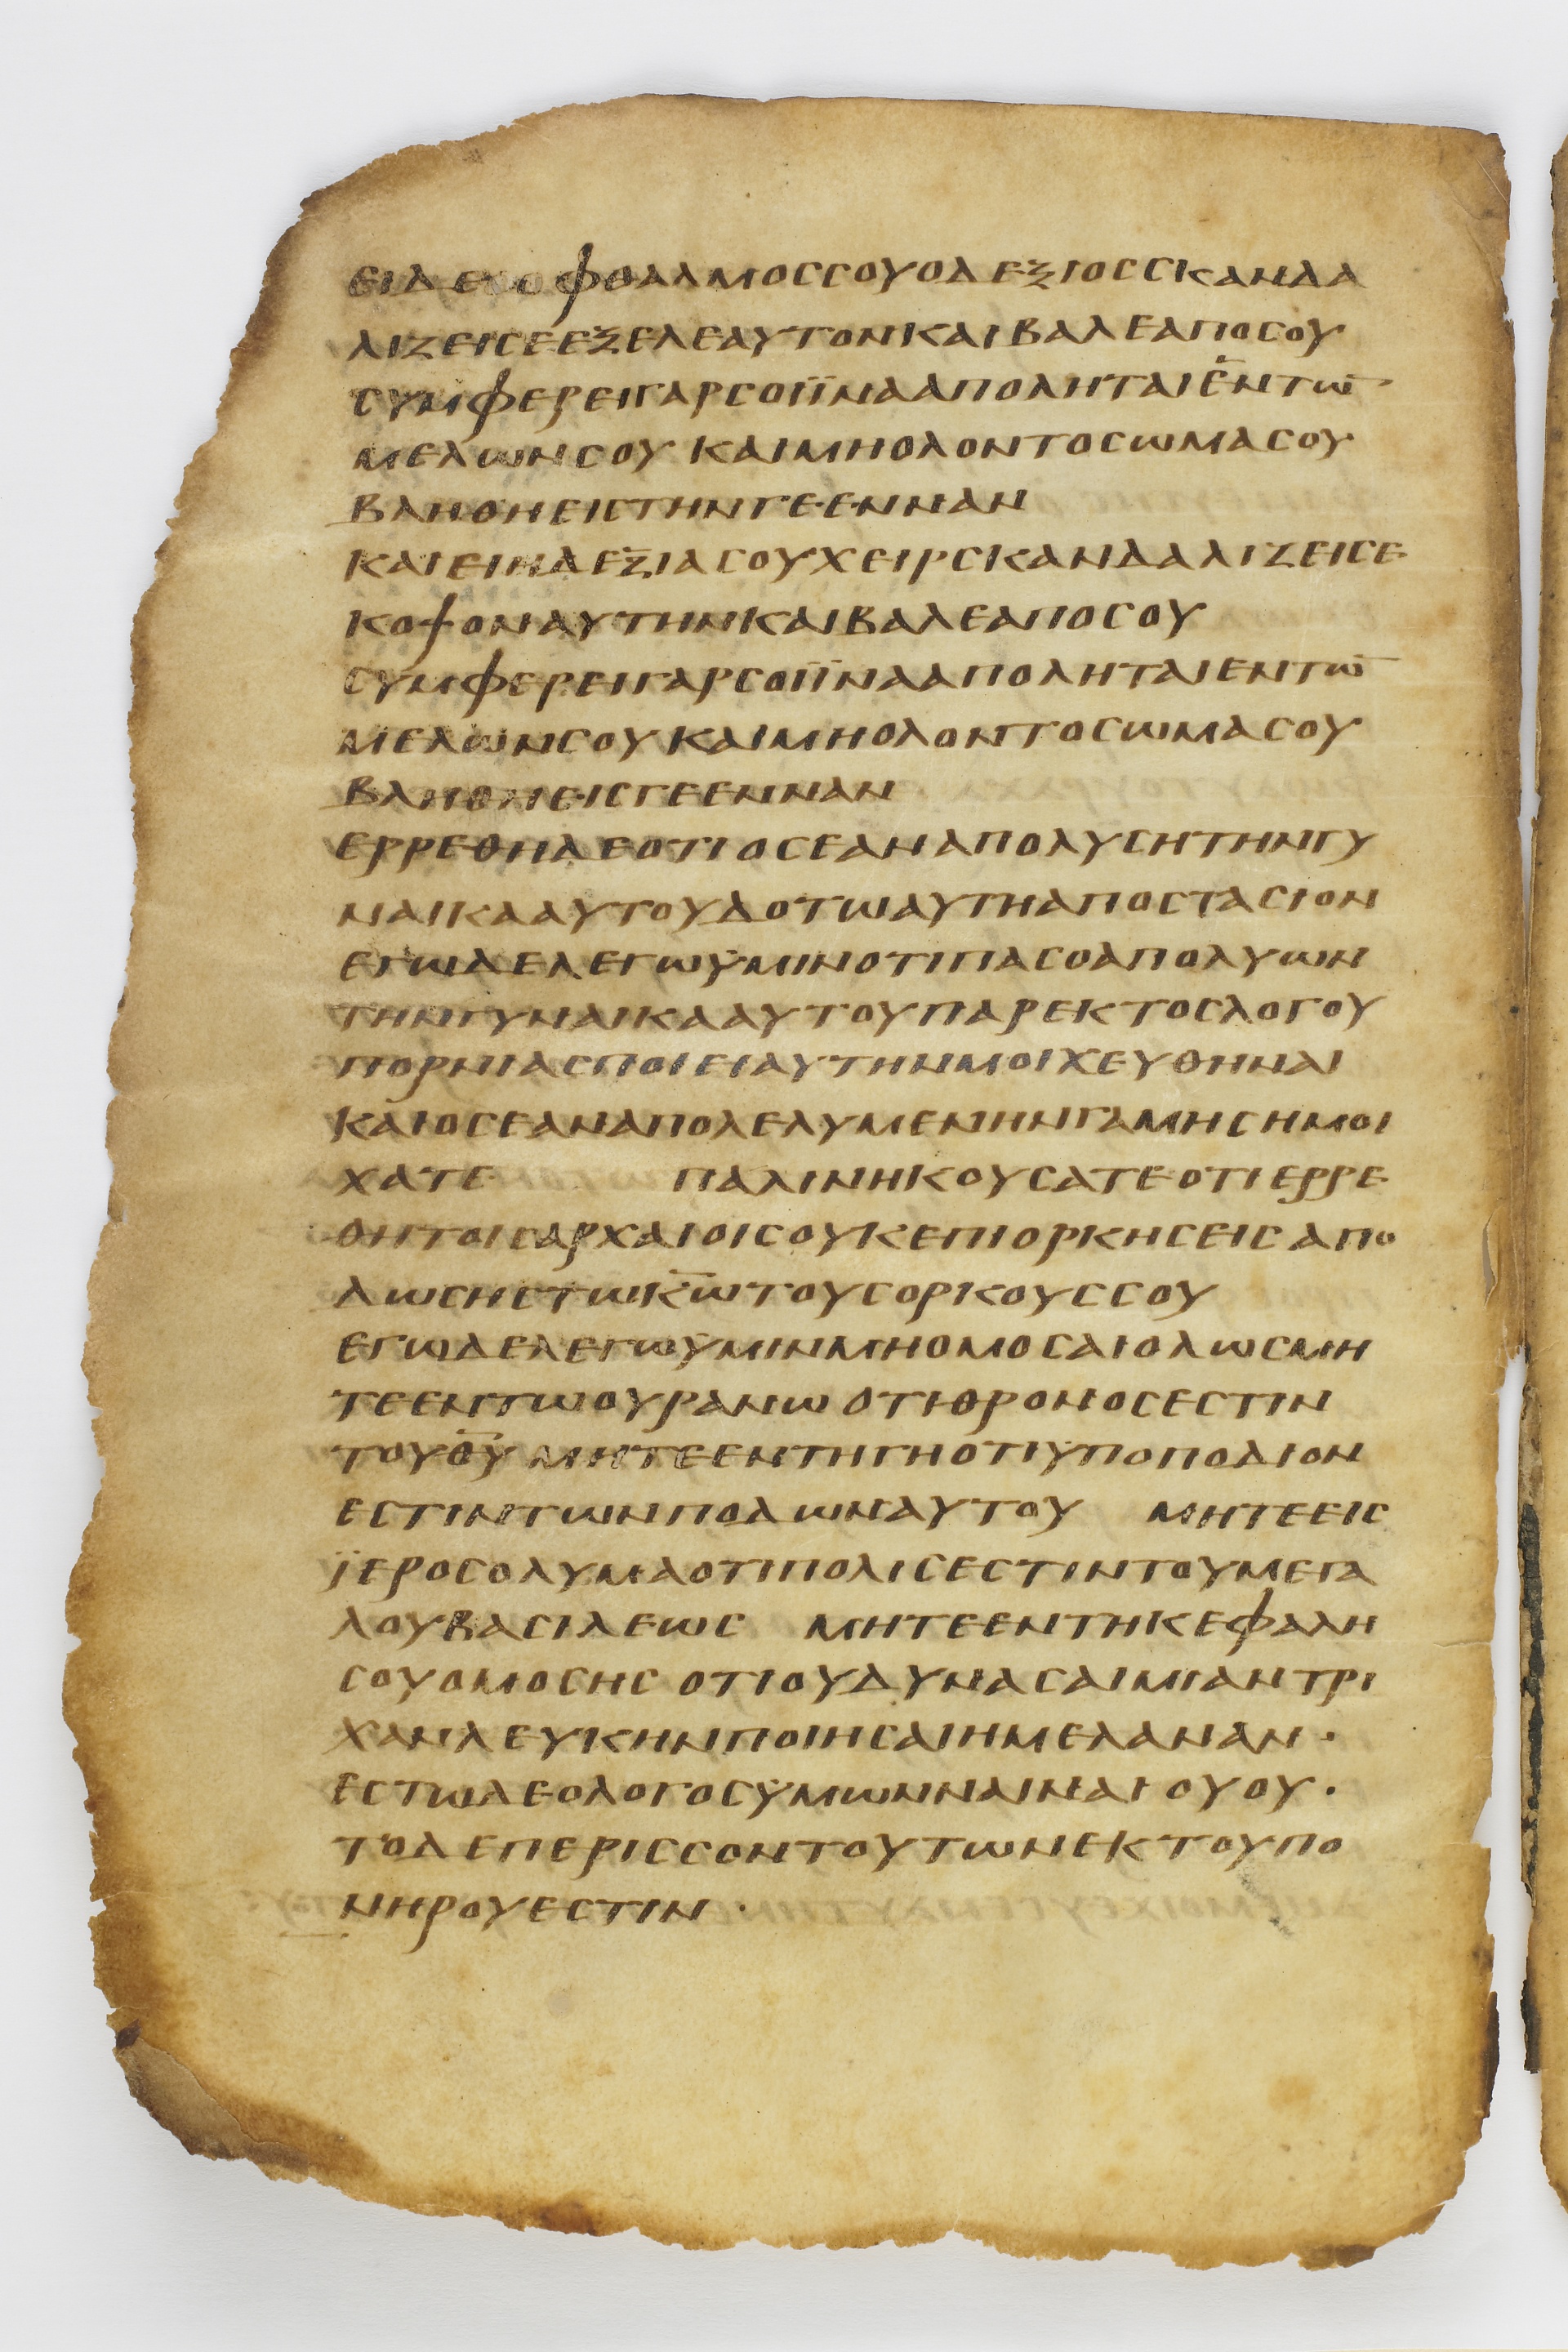 ειδεοοφθαλμοςσουοδεξιοςσκανδα
λιζεισεεξελεαυτονκαιβαλεαποσου
συμφερειγαρσοιϊνααποληταιεντω̅
μελωνσου καιμηολοντοσωμασου
βληθηειστηνγεενναν
καιειηδεξιασουχειρσκανδαλιζεισε
κοψοναυτηνκαιβαλεαποσου
συμφερειγαρσοιϊνααποληταιεντω̅
μελωνσουκαιμηολοντοσωμασου
βληθηεισγεενναν
ερρεθηδεοτιοσεαναπολυσητηνγυ
ναικααυτουδοτωαυτηαποστασιον
εγωδελεγωϋμινοτιπασοαπολυων
τηνγυναικααυτουπαρεκτοσλογου
πορνιασποιειαυτηνμοιχευθηναι
καιοσεαναπολελυμενηνγαμησημοι
χατε παλινηκουσατεοτιερρε
θητοισαρχαιοισουκεπιορκησεισαπο
δωσηστωκ̅ω̅τουσορκουσσου
εγωδελεγωϋμινμηομοσαιολωσμη
τεεντωουρανωοτιθρονοσεστιν
τουθ̅υ̅ μητεεντηγηοτιϋποποδιον
εστιντωνποδωναυτου μητεεισ
ϊεροσολυμαοτιπολισεστιντουμεγα
λουβασιλεωσ μητεεντηκεφαλη
σουομοσησ οτιουδυνασαιμιαντρι
χανλευκηνποιησαιημελαναν·
εστωδεολογοσϋμωνναιναιουου·
τοδεπερισσοντουτωνεκτουπο
νηρουεστιν·